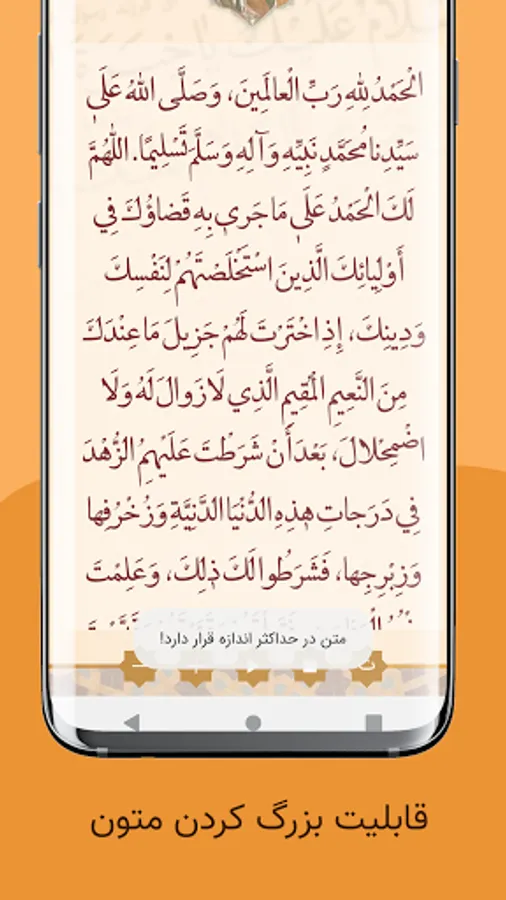 اَلْحَمْدُ لِلّٰهِ رَبِّ الْعالَمِينَ، وَصَلَّى اللّٰهُ عَلَىٰ
سَيِّدِنا مُحَمَّدٍ نَبِيِّهِ وَآلِهِ وَسَلَّمَ تَسْلِيمًا. اللّٰهُمَّ
لَكَ الْحَمْدُ عَلَىٰ مَا جَرىٰ بِهِ قَضاؤُكَ فِي
أَوْلِيائِكَ الَّذِينَ اسْتَخْلَصْتَهُمْ لِنَفْسِكَ
وَدِينِكَ، إِذِ اخْتَرْتَ لَهُمْ جَزِيلَ مَا عِنْدَكَ
مِنَ النَّعِيمِ الْمُقِيمِ الَّذِي لَا زَوالَ لَهُ وَلَا
اضْمِحْلالَ، بَعْدَ أَنْ شَرَطْتَ عَلَيْهِمُ الزُّهْدَ
فِي دَرَجاتِ هٰذِهِ الدُّنْيَا الدَّنِيَّةِ وَزُخْرُفِها
وَزِبْرِجِها، فَشَرَطُوا لَكَ ذٰلِكَ، وَعَلِمْتَ
متن در حداکثر اندازه قرار دارد!
قابلیت بزرگ کردن متون